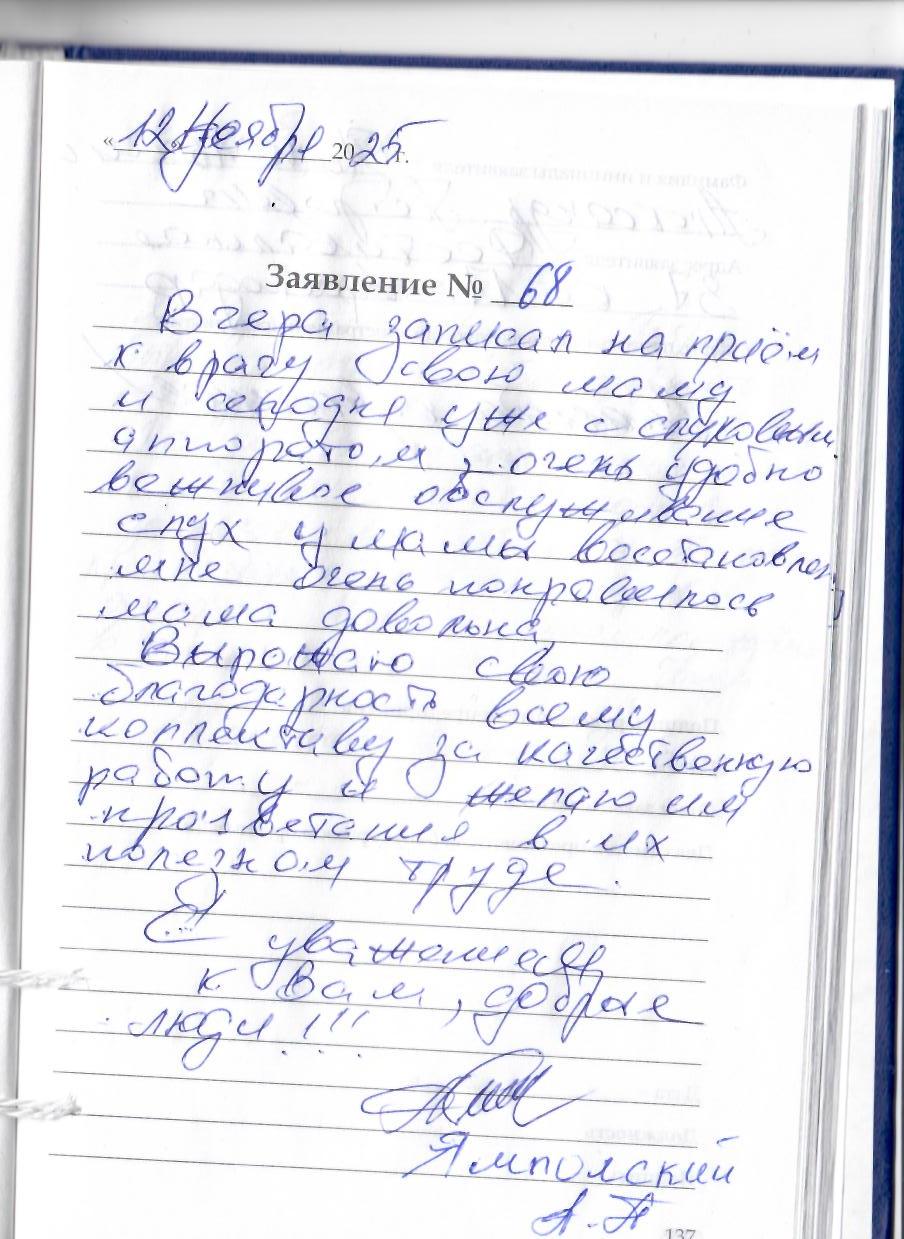 « 12 » Ноября 2025 г.
Заявление № 68
Вчера записал на приём
к врачу свою маму
и сегодня уже с слуховым
аппоратом, очень удобно
вежливое обслуживание
слух у мамы восстановлен
мне очень понравилось
мама довольна
Выражаю свою
благодарность всему
коллективу за качественную
работу и желаю им
процветания в их
полезном труде.
С уважением
к Вам, добрые
люди!!!
Ямполский
А.П
137